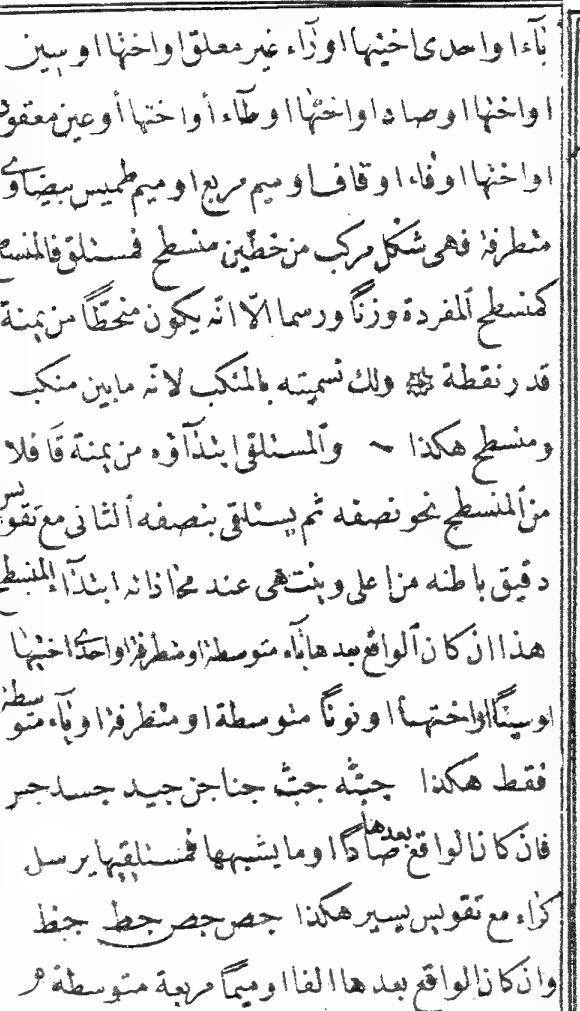 باء او احدى اختيها او راء غير معلق او اختها او سين
او اختها او صاد او اختها او طاء أو اختها أو عين معقود
او اختها او فاء او قاف او ميم مربع او ميم طميس بيضاوي
متطرفة فهى شكل مركب من خطين منسطح فمستلق فالمنسطح
كمنسطح المفردة وزنًا ورسما الّا انّه يكون منحطًّا من يمنة
قدر نقطة ولك تسميته بالمنكب لانّه مابين منكب
ومنسطح هكذا والمستلقى ابتدآؤه من يمنة قافلا
من المنسطح نحو نصفه ثم يستلقى بنصفه الثانى مع تقويس
دقيق باطنه من اعلى وينتهى عند محاذاته ابتدآء المنسطح
هذا ان كان الواقع بعدها باء متوسطة او متطرفة او احدى اختيها
او سينًا او اختها او نونًا متوسطة او متطرفة او ياء متوسطة
فقط هكذا جبثه جبث جنا جن جيد جسد جس
فان كان الواقع بعدها صادًا او مايشبهها فمستلقيها يرسل
كراء مع تقويس يسير هكذا جص جص جط جظ
وان كان الواقع بعدها الفا او ميمًا مربعة متوسطة